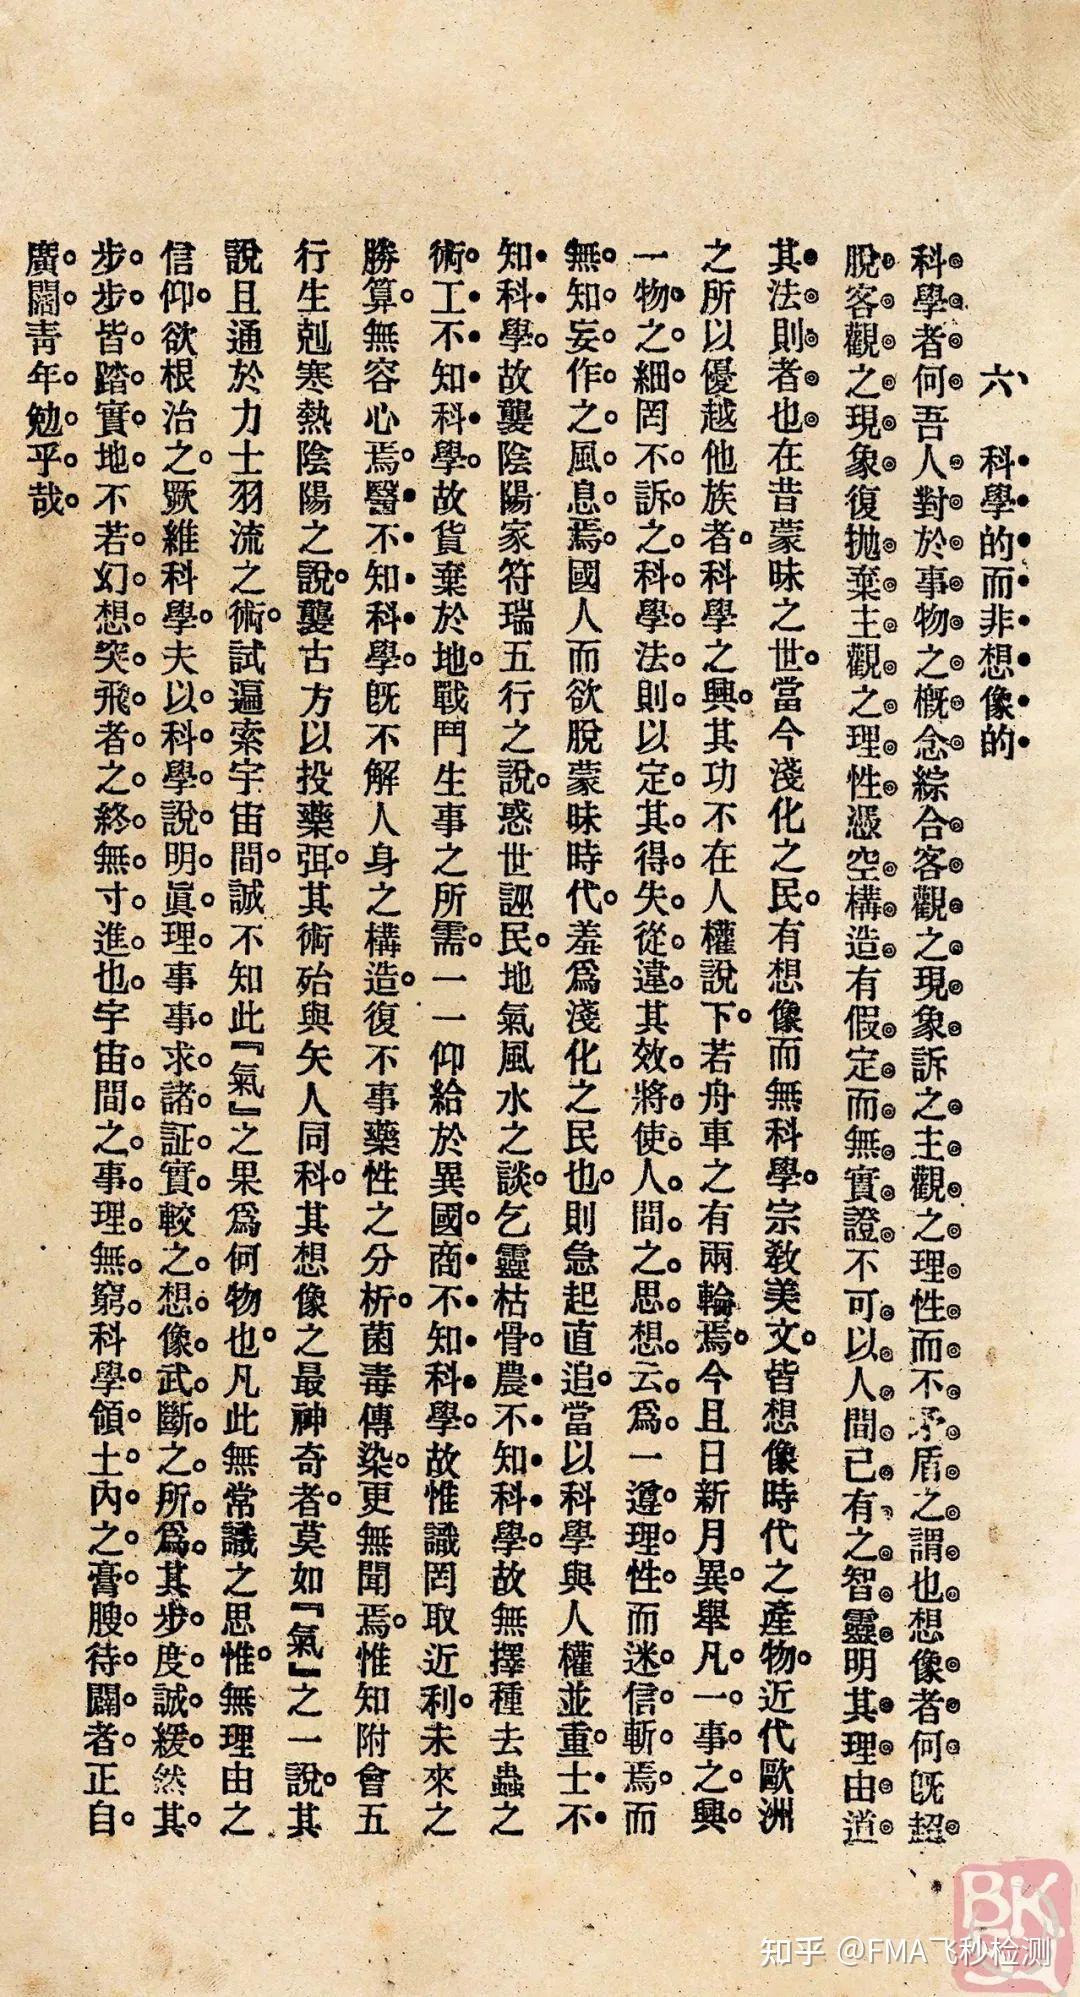 六、科學的而非想像的
科學者何吾人對於事物之槪念綜合客觀之現象訴之主觀之理性而不矛盾之謂也想像者何旣超
脫客觀之現象復拋棄主觀之理性憑空構造有假定而無實證不可以人間已有之智靈明其理由道
其法則者也在昔蒙昧之世。當今淺化之民。有想像而無科學。宗敎美文。皆想像時代之產物。近代歐洲
之所以優越他族者。科學之興。其功不在人權說下。若舟車之有兩輪焉。今且日新月異。舉凡一事之興
一物之細罔不訴之科學法則以定其得失從違其效將使人間之思想云爲一遵理性而迷信斬焉而
無知妄作之風息焉。國人而欲脫蒙昧時代。羞爲淺化之民也。則急起直追。當以科學與人權並重。士不
知科學。故襲陰陽家符瑞五行之說。惑世誣民。地氣風水之談。乞靈枯骨。農不知科學。故無擇種去蟲之
術。工不知科學。故貨棄於地。戰鬥生事之所需。一一仰給於異國。商不知科學。故惟識罔取近利。未來之
勝算。無容心焉。醫不知科學。旣不解人身之構造。復不事藥性之分析。菌毒傳染。更無聞焉。惟知附會五
行生剋寒熱陰陽之說。襲古方以投藥弭。其術殆與矢人同科。其想像之最神奇者。莫如『氣』之一說。其
說且通於力士羽流之術。試遍索宇宙間。誠不知此『氣』之果爲何物也。凡此無常識之思惟。無理由之
信仰。欲根治之。厥維科學。夫以科學說明眞理事事求諸証實較之想像武斷之所爲其步度誠緩然其
步步皆踏實地不若幻想突飛者之終無寸進也宇宙間之事理無窮科學領土內之膏腴待闢者正自
廣闊青年勉乎哉
BK
知乎 @FMA飞秒检测